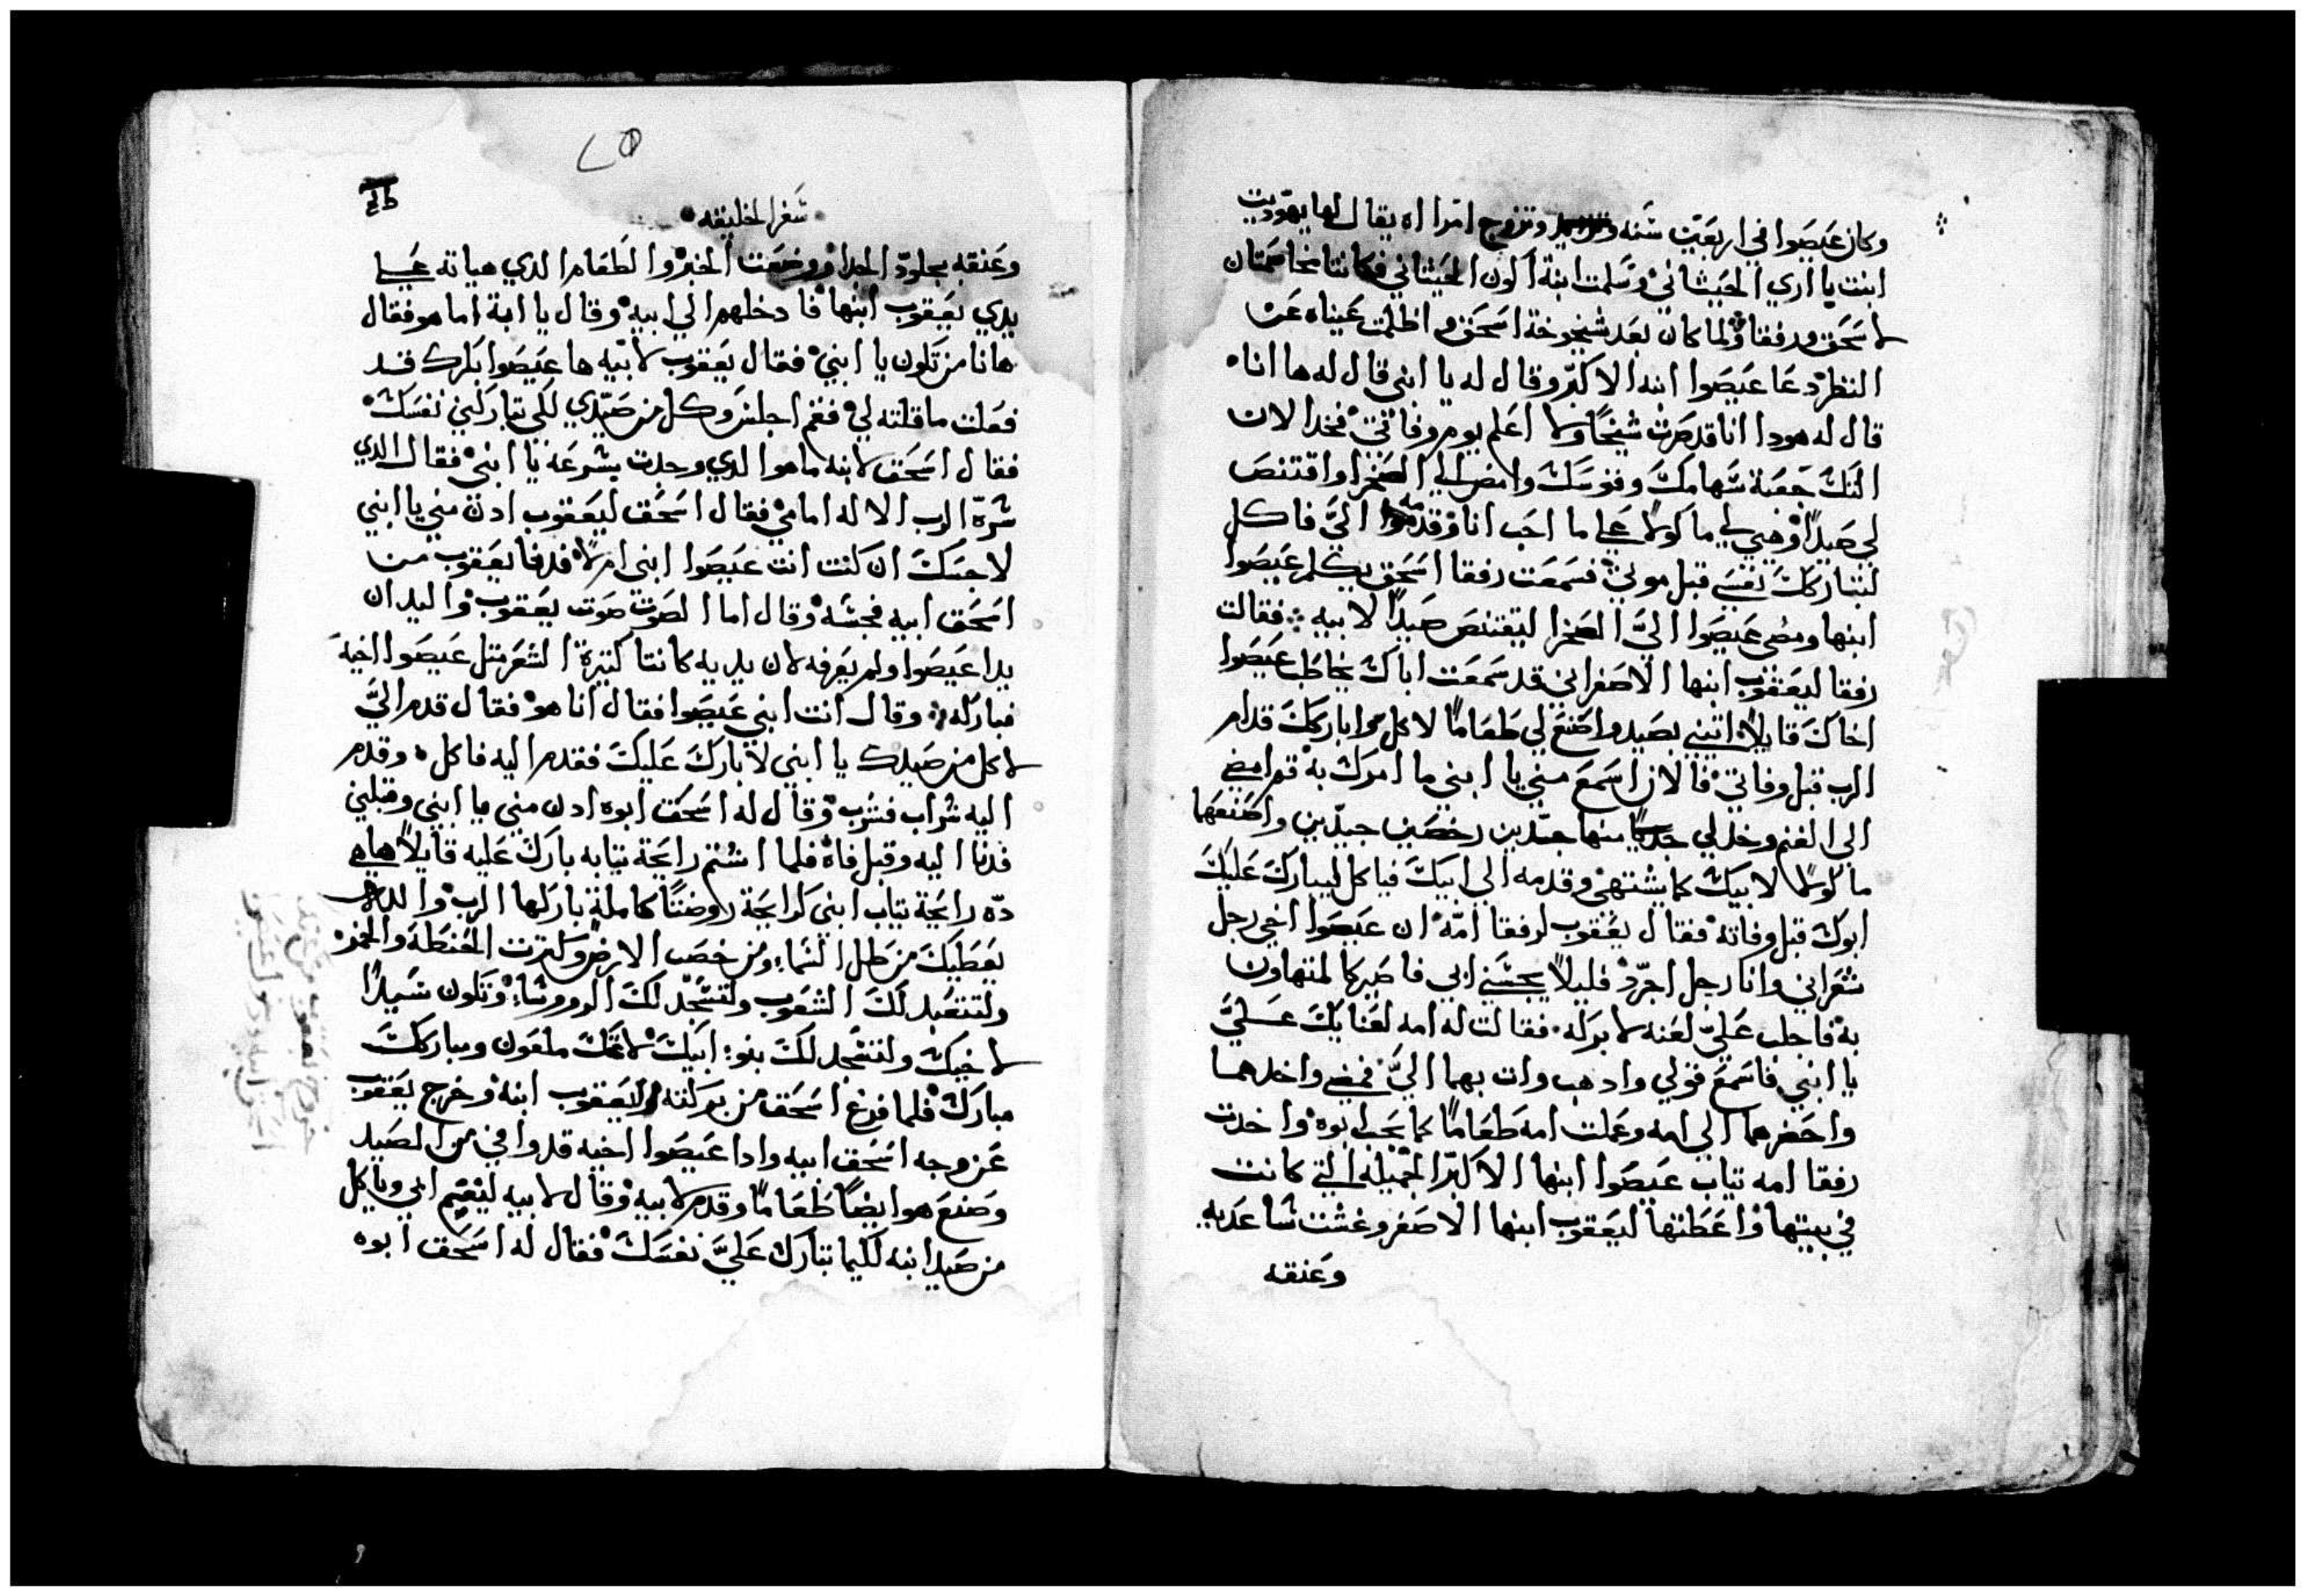 وكان عيصوا في اربعين سنه وتزوج امراه يقال لها يهوديت
ابنت يا اري الحيثاني وسلمت ابنة الون الحيثاني فكانتا مخاصمتان
لاسحق ورفقا ولما كان بعد شيخوخة اسحق واظلمت عيناه عن
النظر دعا عيصوا ابنه الاكبر وقال له يا ابني قال له ها انا
قال له هودا انا قد صرت شيخًا ولا اعلم يوم وفاتي فخد الان
التك جعبة سهامك وقوسك وامض الي الصحرا واقتنص
لي صيدًا وهيي لي ماكولا علي ما احب انا وقدمه اليَّ فاكل
لتباركك نفسي قبل موتي فسمعت رفقا اسحق يكلم عيصوا
ابنها ومضي عيصوا اليَّ الصحرا ليقتنص صيدًا لابيه فقالت
رفقا ليعقوب ابنها الاصغر اني قد سمعت اباك يخاطب عيصوا
اخاك قايلاً اتيني بصيد واصنع لي طعامًا لاكل واباركك قدام
الرب قبل وفاتي فالان اسمع مني يا ابني ما امرك به قم امضي
الي الغنم وخد لي منها جديين رخصين جيدين واصنعهما
ماكولا لابيك كما يشتهي وقدمه الي ابيك فياكل ليبارك عليك
ابوك قبل وفاته فقال يعقوب لرفقا امّه ان عيصوا اخي رجل
شعراني وانا رجل اجرد قليلاً يجسني ابي فاصير كالمتهاون
به فاجلب عليَّ لعنه لا بركه فقالت له امه لعنايك عليَّ
يا ابني فاسمع قولي وادهب وات بهما اليَّ فمضي واخدهما
واحضرهما الي امه وعملت امه طعامًا كما يحب ابوه واخدت
رفقا امه تياب عيصوا ابنها الاكبر الجميله التي كانت
في بيتها واعطتها ليعقوب ابنها الاصغر وغشت ساعديه
وعنقه
سفر الخليقه
وعنقه بجلود الجدا ووضعت الخبز والطعام الدي هياته علي
يدي يعقوب ابنها فادخلهم الي ابيه وقال يا ابة اما هو فقال
هانا من تكون يا ابني فقال يعقوب لابيه ها عيصوا بكرك قد
فعلت ما قلته لي فقم اجلس وكل من صيدي لكي تباركني نفسك
فقال اسحق لابنه ما هوا الدي وجدت بسرعة يا ابني فقال الدي
سره الرب الاله امامي فقال اسحق ليعقوب ادن مني يا ابني
لاجسك ان كنت انت عيصوا ابني ام لا فدنا يعقوب من
اسحق ابيه فجسه وقال اما الصوت صوت يعقوب واليدان
يدا عيصوا ولم يعرفه لان يديه كانتا كتيرة الشعر متل عيصوا اخيه
فباركه وقال انت ابني عيصوا فقال انا هو فقال قدم اليَّ
لاكل من صيدك يا ابني لابارك عليك فقدم اليه فاكل وقدم
اليه شراب فشرب وقال له اسحق ابوه ادن مني يا ابني وقبلني
فدنا اليه وقبل فاه فلما اشتم رايحة تيابه بارك عليه قايلاً هاهي
ده رايحة تياب ابني كرايحة روضتًا كاملة باركها الرب والله
يعطيك من طل السماء ومن خصب الارض وكترت الحنطة والخمر
ولتتعبد لك الشعوب ولتسجد لك الروسا وتكون سيدًا
لاخيك ولتسجد لك بنو ابيك لاعنك ملعون ومباركك
مبارك فلما فرغ اسحق من بركته ليعقوب ابنه وخرج يعقوب
عن وجه اسحق ابيه وادا عيصوا اخيه قد وافي من الصيد
وصنع هو ايضًا طعامًا وقدم لابيه وقال لابيه ليقم ابي وياكل
من صيد ابنه لكيما تبارك عليَّ نفسك فقال له اسحق ابوه